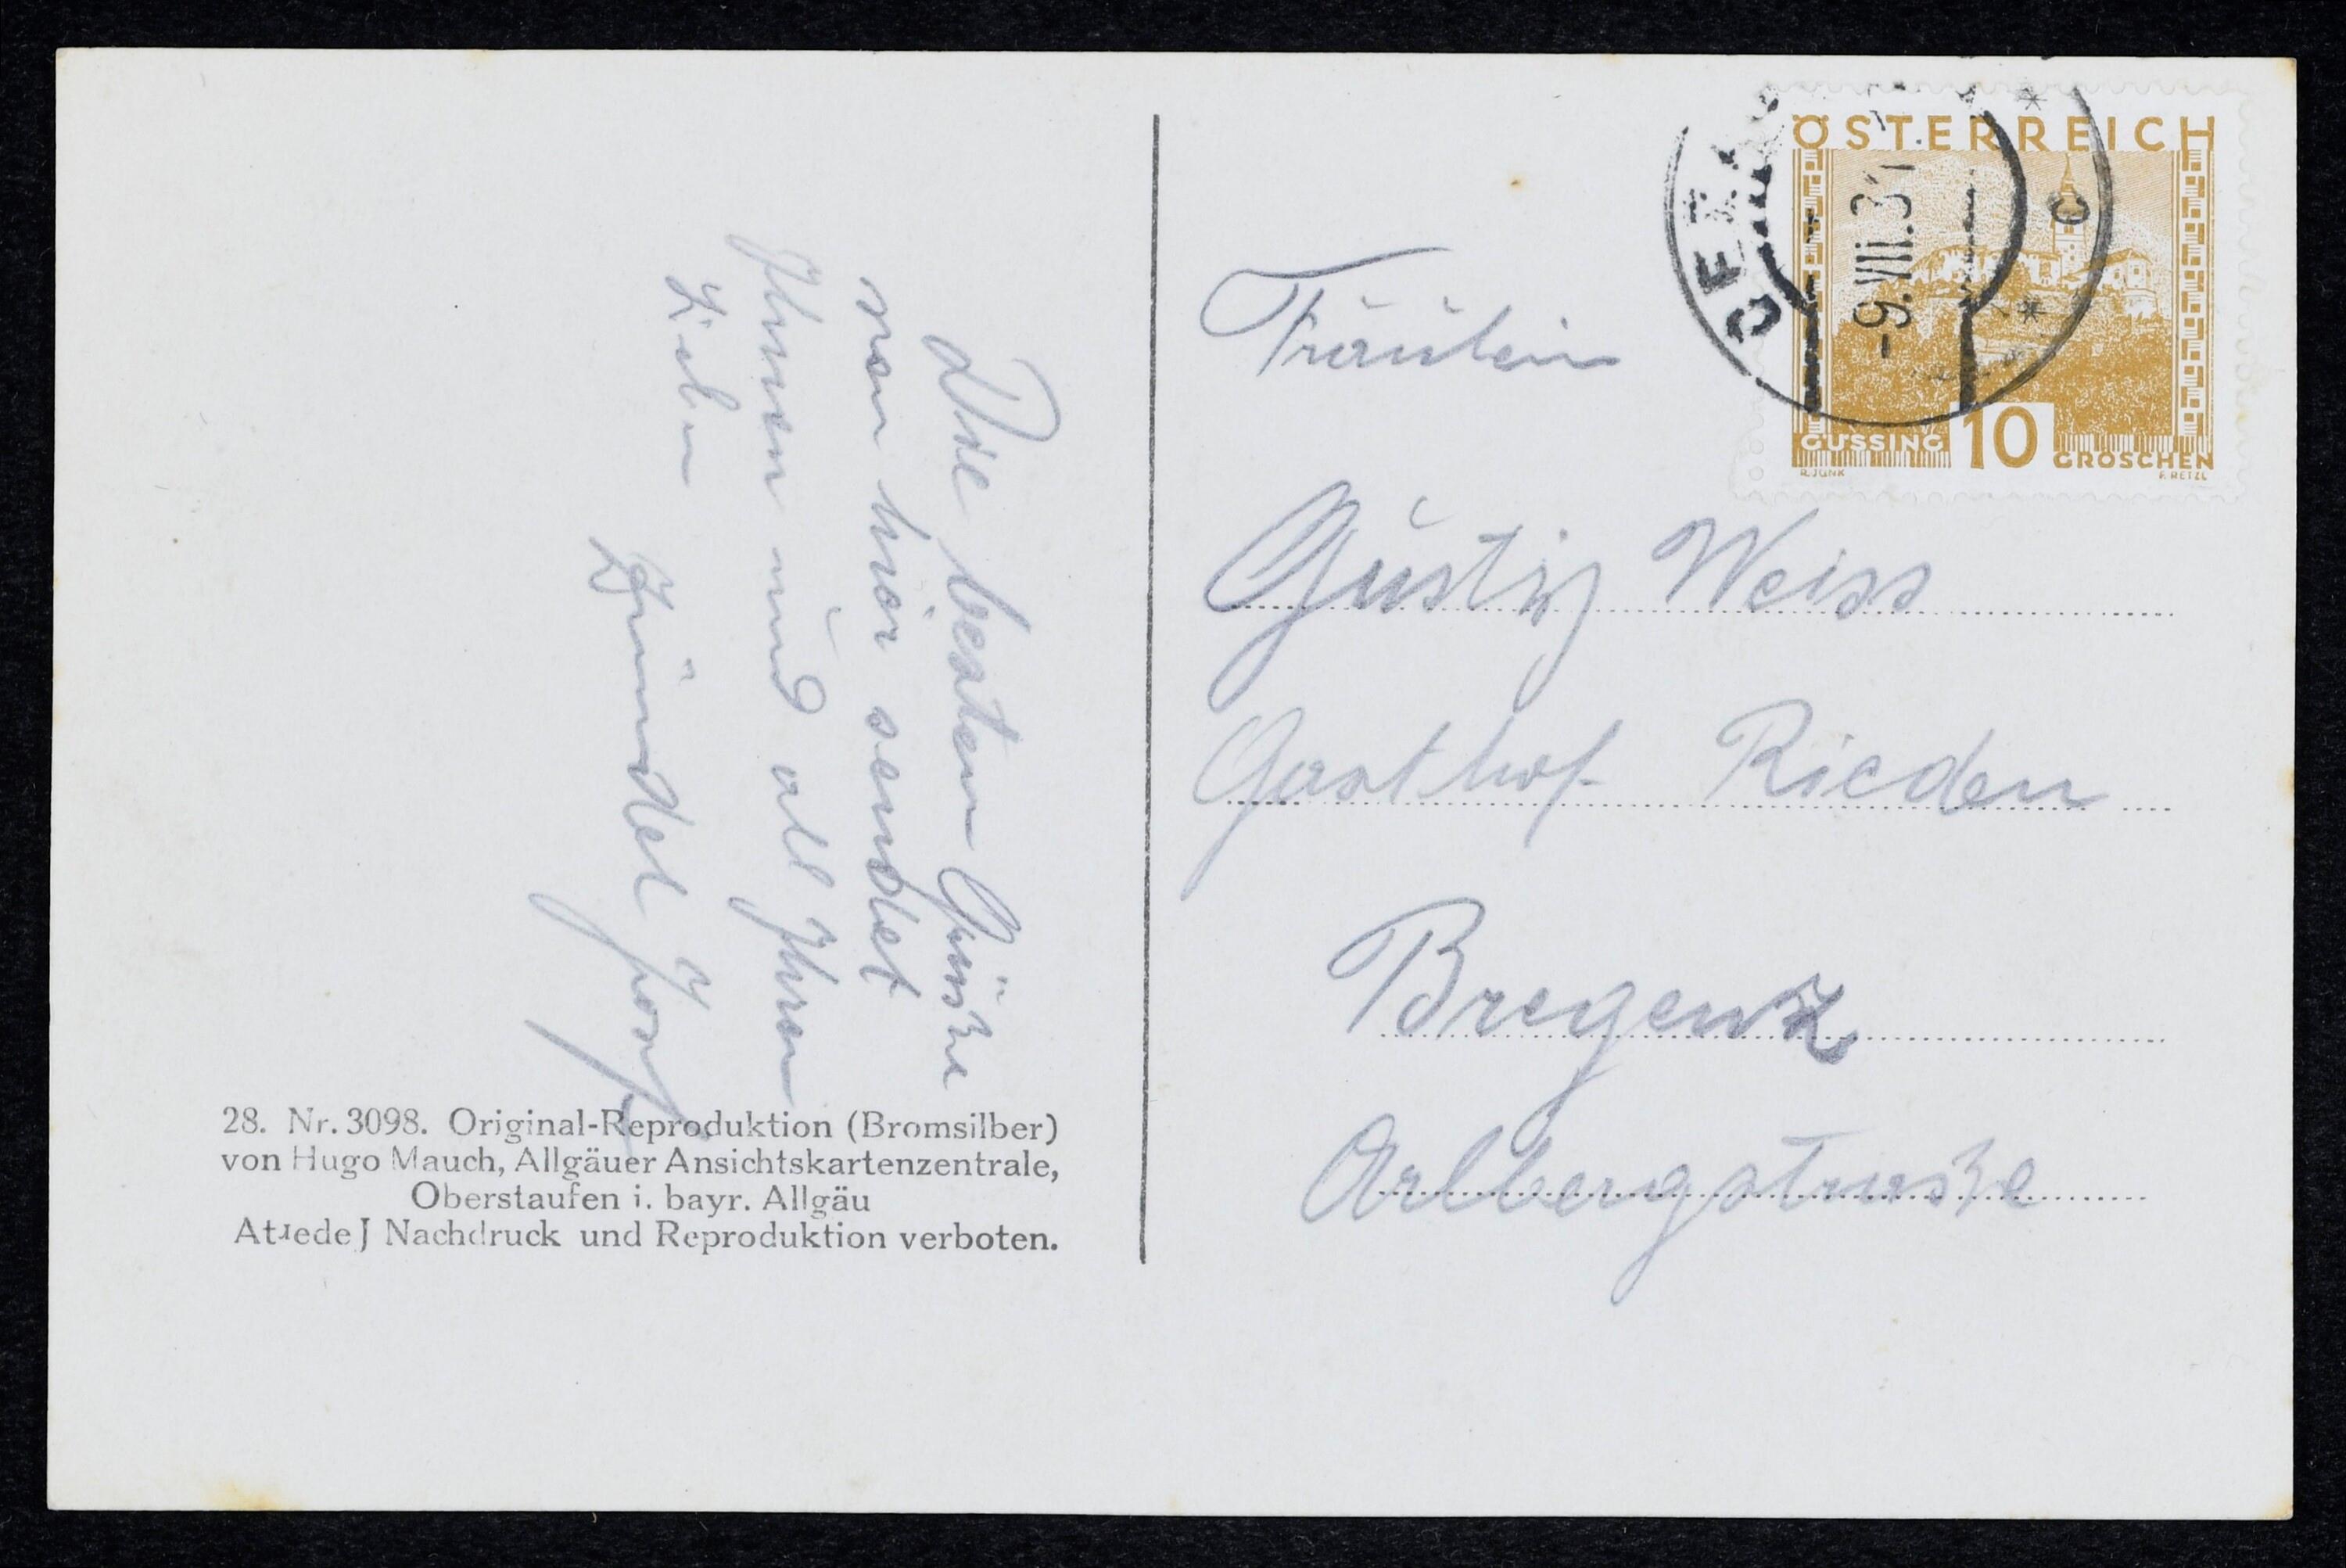 Die besten Grüsse
von hier sendet
Ihnen und all Ihren
Lieben Zündel Josef
28. Nr. 3098. Original-Reproduktion (Bromsilber)
von Hugo Mauch, Allgäuer Ansichtskartenzentrale,
Oberstaufen i. bayr. Allgäu
Nachdruck und Reproduktion verboten.
ÖSTERREICH
-9.VII.31
C
GÜSSING 10 GROSCHEN
R. JUNK F. RETZL
Fräulein
Gusty Weiss
Gasthof Rieden
Bregenz
Arlbergstrasse